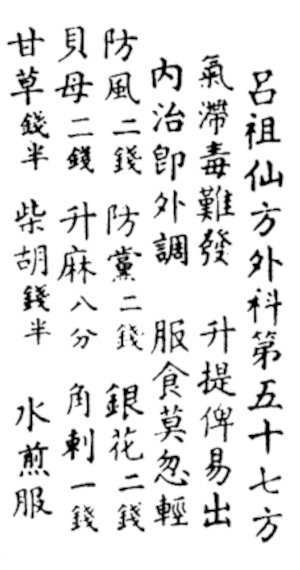 呂祖仙方外科第五十七方
氣滯毒難發 升提俾易出
內治即外調 服食莫忽輕
防風二錢 防黨二錢 銀花二錢
貝母二錢 升麻八分 角刺一錢
甘草錢半 柴胡錢半 水煎服